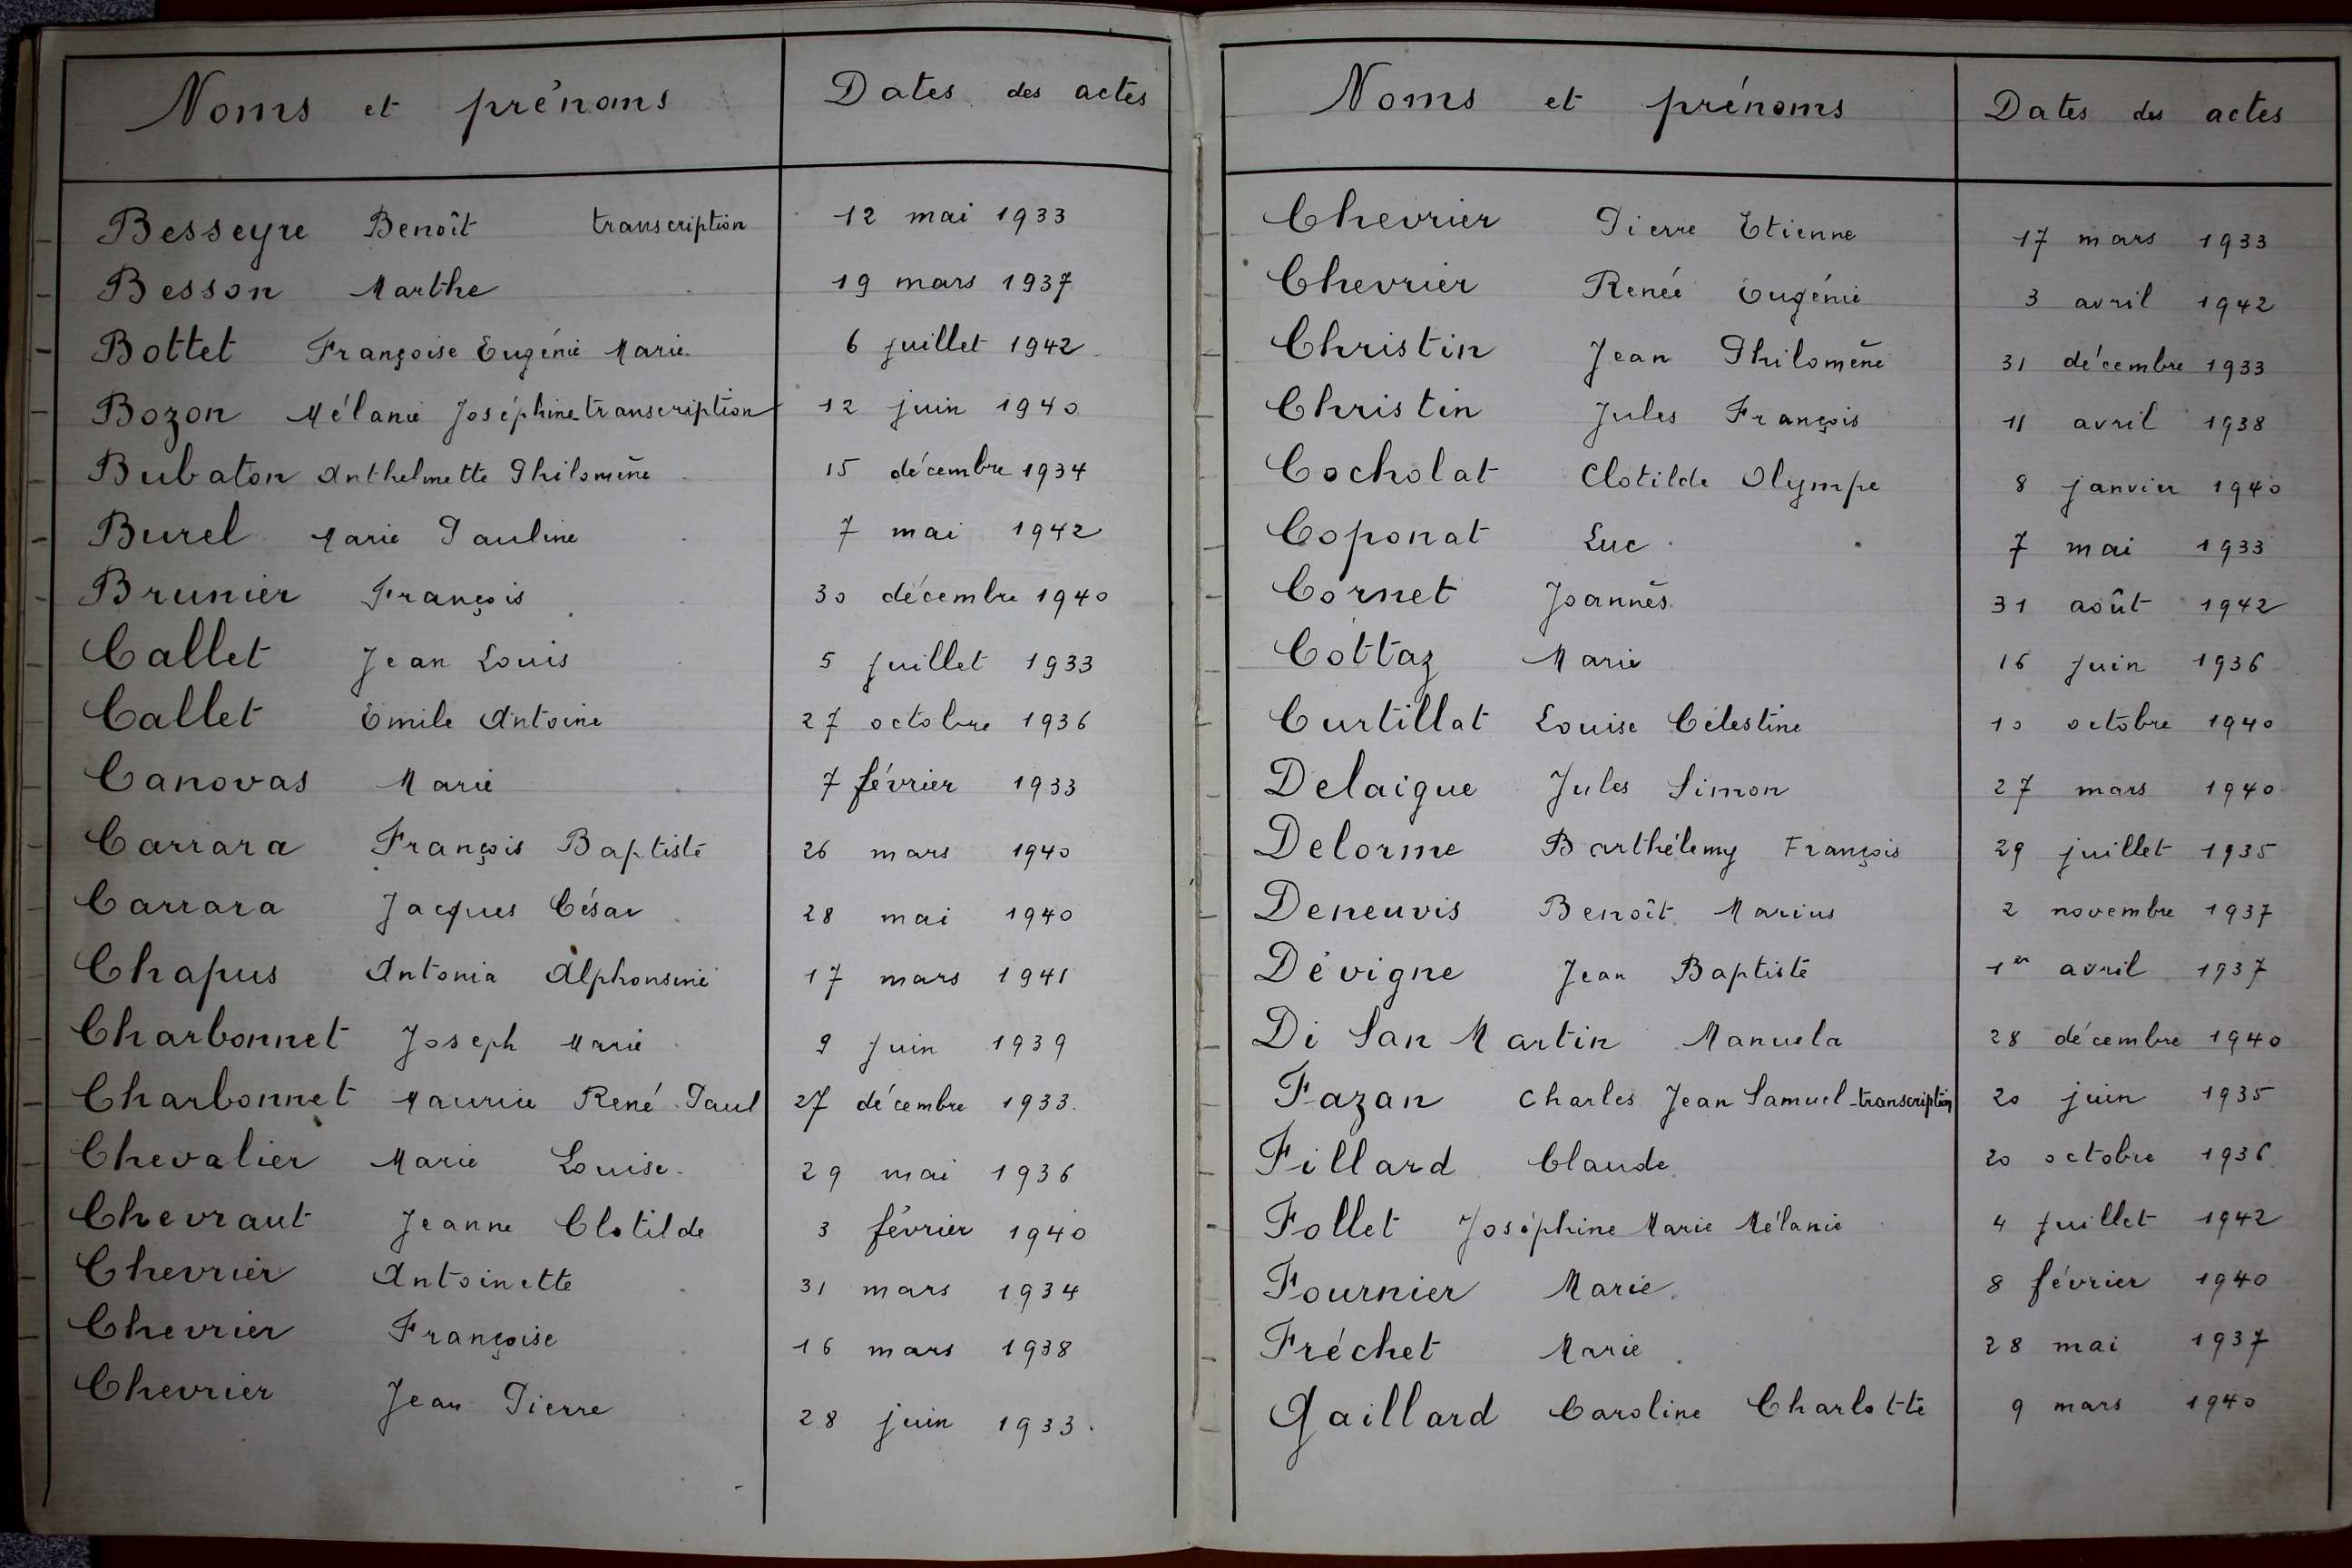 Noms et prénoms Dates des actes
Besseyre Benoît transcription 12 mai 1933
Besson Marthe 19 mars 1937
Bottet Françoise Eugénie Marie 6 juillet 1942
Bozon Mélanie Joséphine-transcription 12 juin 1940
Bubaton Anthelmette Philomène 15 décembre 1934
Burel Marie Pauline 7 mai 1942
Brunier François 30 décembre 1940
Callet Jean Louis 5 juillet 1933
Callet Emile Antoine 27 octobre 1936
Canovas Marie 7 février 1933
Carrara François Baptiste 26 mars 1940
Carrara Jacques César 28 mai 1940
Chapus Antonia Alphonsine 17 mars 1941
Charbonnet Joseph Marie 9 juin 1939
Charbonnet Maurice René Paul 27 décembre 1933.
Chevalier Marie Louise 29 mai 1936
Chevraut Jeanne Clotilde 3 février 1940
Chevrier Antoinette 31 mars 1934
Chevrier Françoise 16 mars 1938
Chevrier Jean Pierre 28 juin 1933.
Noms et prénoms Dates des actes
Chevrier Pierre Etienne 17 mars 1933
Chevrier Renée Eugénie 3 avril 1942
Christin Jean Philomène 31 décembre 1933
Christin Jules François 11 avril 1938
Cocholat Clotilde Olympe 8 janvier 1940
Coponat Luc 7 mai 1933
Cornet Joannès 31 août 1942
Cottaz Marie 16 juin 1936
Curtillat Louise Célestine 10 octobre 1940
Delaigue Jules Simon 27 mars 1940
Delorme Barthélemy François 29 juillet 1935
Deneuvis Benoît Marius 2 novembre 1937
Dévigne Jean Baptiste 1er avril 1937
Di San Martin Manuela 28 décembre 1940
Fazan Charles Jean Samuel-transcription 20 juin 1935
Fillard Claude 20 octobre 1936
Follet Joséphine Marie Mélanie 4 juillet 1942
Fournier Marie 8 février 1940
Fréchet Marie 28 mai 1937
Gaillard Caroline Charlotte 9 mars 1940